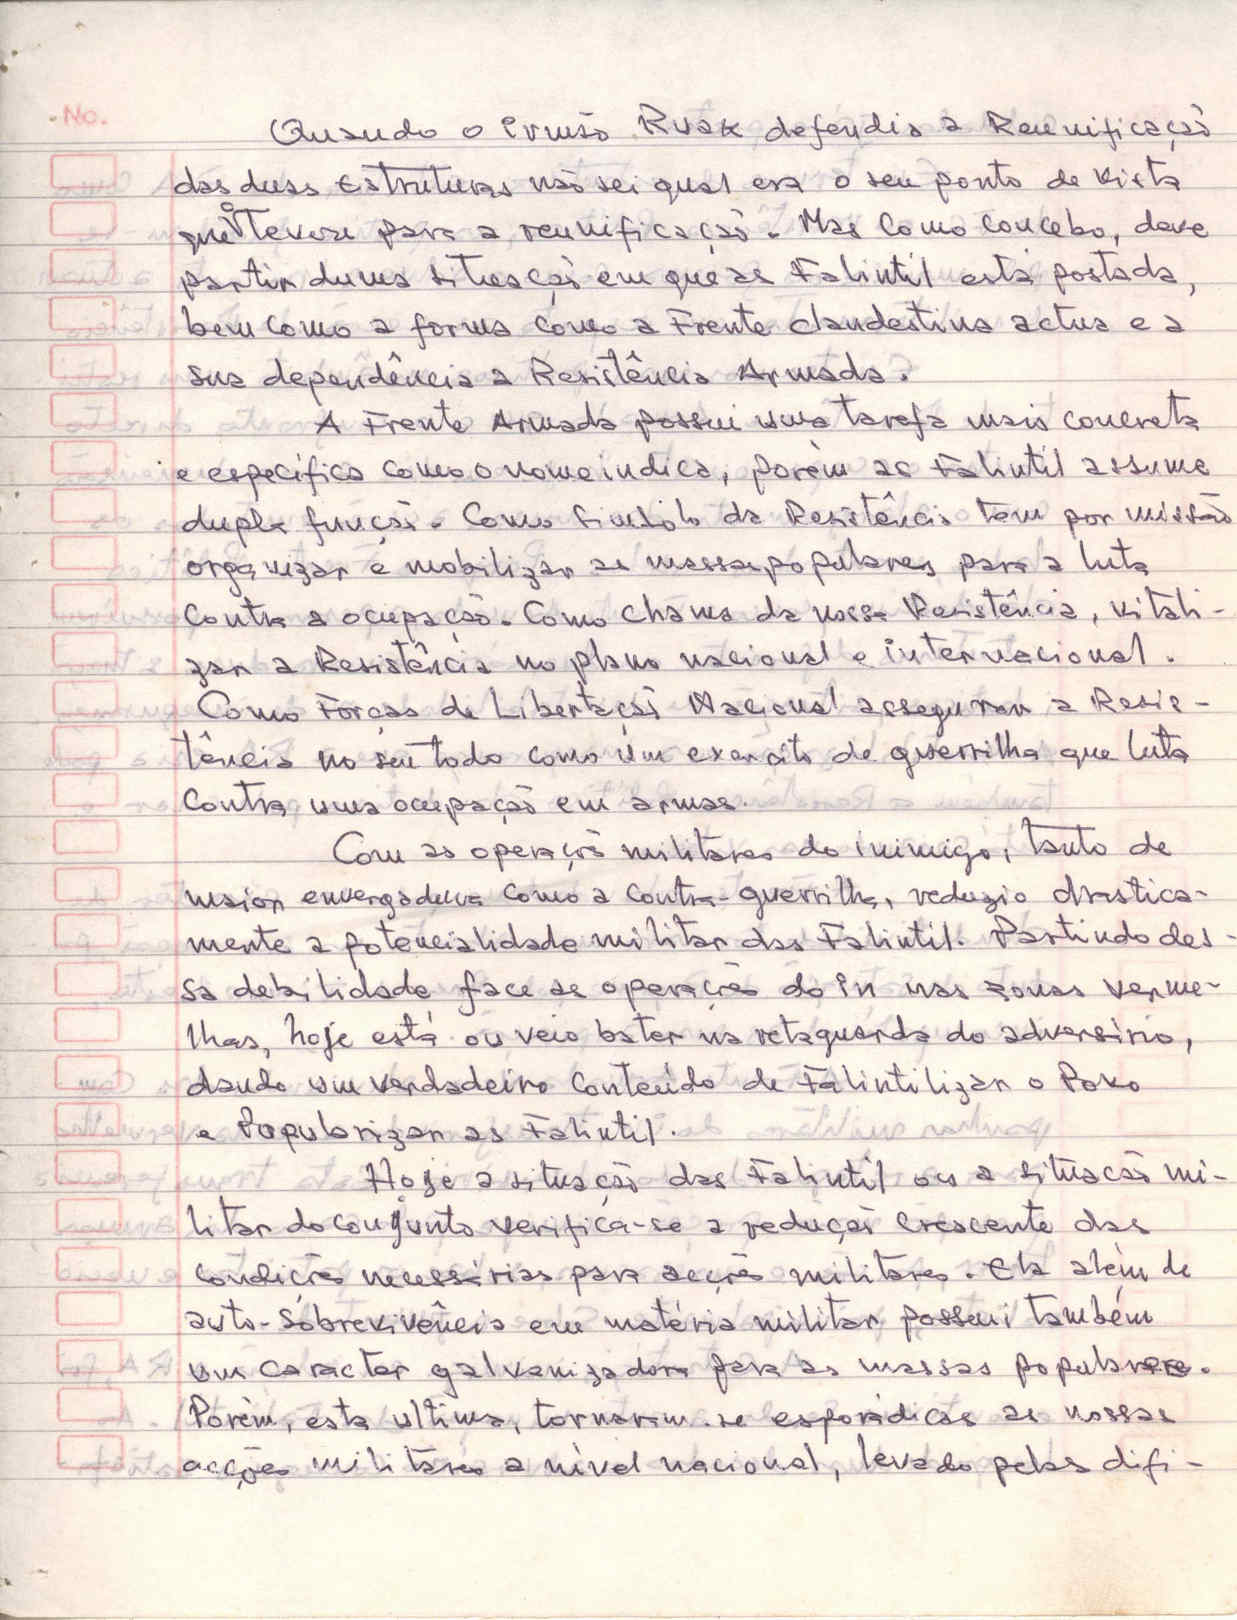 No.
Quando o irmão Ruak defendia a Reunificação
das duas Estruturas não sei qual era o seu ponto de vista
que o levou para a reunificação. Mas como concebo, deve
partir duma situação em que as Falintil está postada,
bem como a forma como a Frente clandestina actua e a
sua dependência a Resistência Armada.
A Frente Armada possui uma tarefa mais concreta
e específica como o nome indica, porém as Falintil assume
dupla função. Como Símbolo da Resistência tem por missão
organizar e mobilizar as massas populares para a luta
contra a ocupação. Como chama da nossa Resistência, vitali-
zar a Resistência no plano nacional e internacional.
Como Forças de Libertação Nacional asseguram a Resis-
tência no seu todo como um exercito de guerrilha que luta
contra uma ocupação em armas.
Com as operações militares do inimigo, tanto de
maior envergadura como a contra-guerrilha, reduzio drastica-
mente a potencialidade militar das Falintil. Partindo des-
sa debilidade face as operações do in nas zonas verme-
lhas, hoje está ou veio bater na retaguarda do adversário,
dando um verdadeiro conteúdo de Falintilizar o Povo
e Popularizar as Falintil.
Hoje a situação das Falintil ou a situacão mi-
litar do conjunto verifica-se a redução crescente das
condições necessárias para acções militares. Ela além de
auto-sobrevivência em matéria militar possui também
um caracter galvanizadora para as massas populares.
Porém, esta ultima, tornaram-se esporádicas as nossas
acções militares a nível nacional, levado pelas difi-